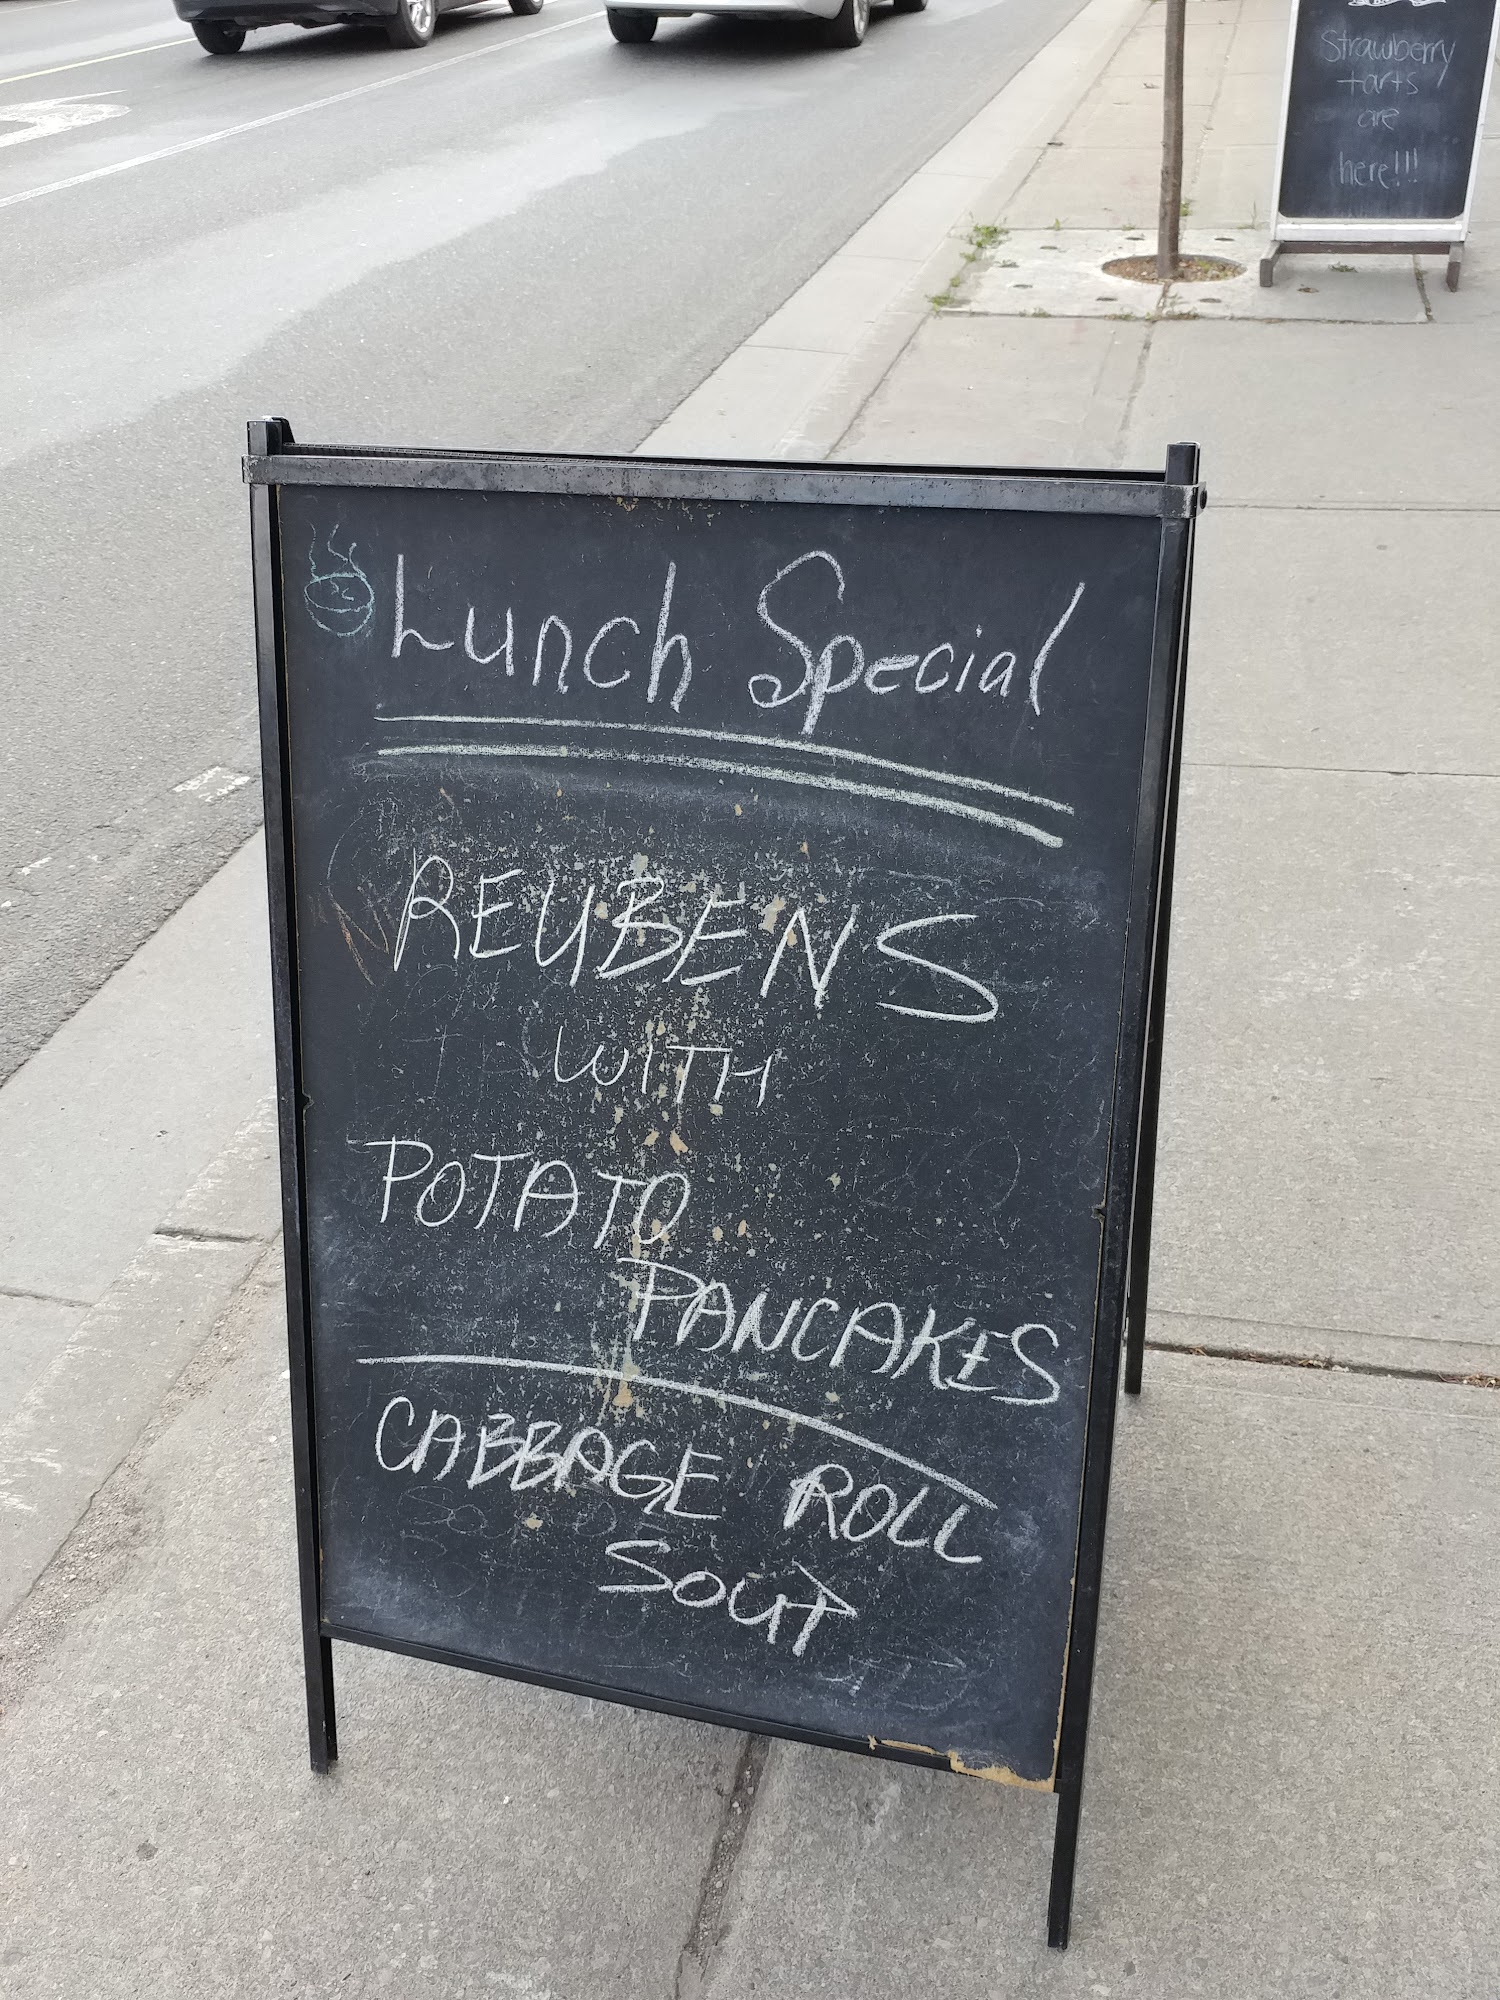 Lunch Special
REUBENS
WITH
POTATO
PANCAKES
CABBAGE ROLL
SOUP
Strawberry
tarts
are
here!!!